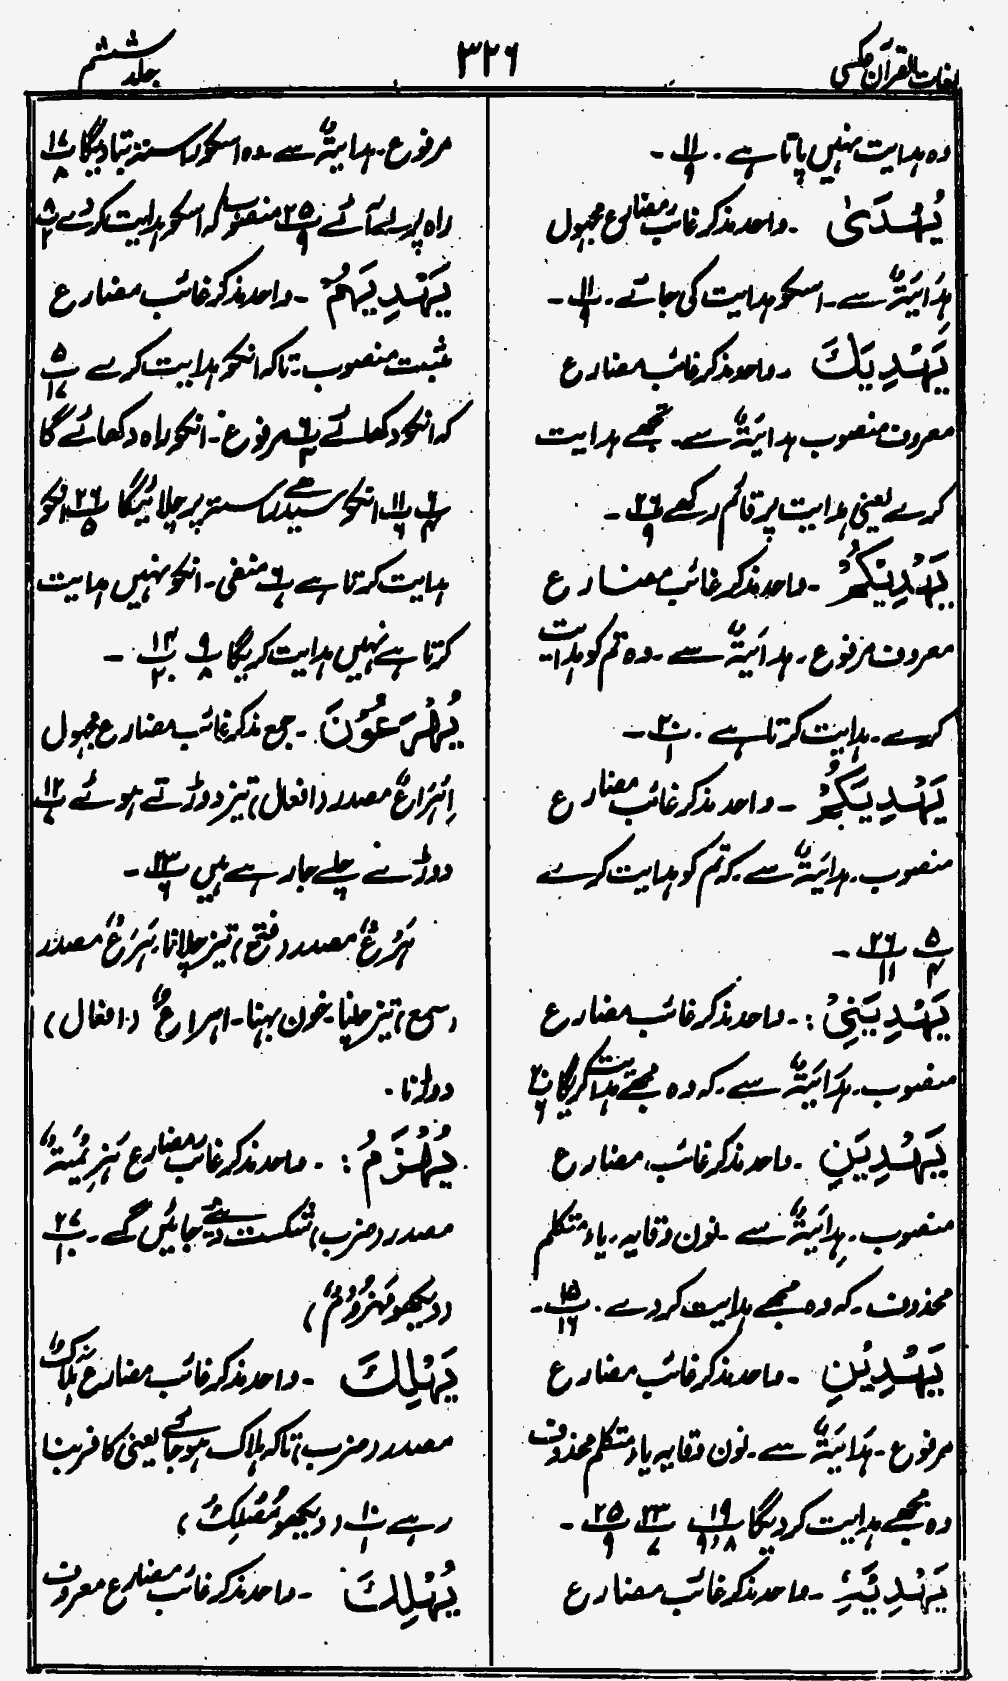 لغات القرآن عکسی
۳۲۶
جلد ششم
وہ ہدایت نہیں پاتا ہے ۔ پ ۱۱/۹ ۔
یُہْدَیٰ ۔ واحد مذکر غائب مضارع مجہول
ہِدَایَۃٌ سے ۔ اسکو ہدایت کی جائے ۔ پ ۱۱/۹ ۔
یَہْدِیَكَ ۔ واحد مذکر غائب مضارع
معروف منصوب ہدایَۃٌ سے ۔ تجھے ہدایت
کرے یعنی ہدایت پر قائم رکھے پ ۲۶/۹ ۔
یَہْدِیْکُمْ ۔ واحد مذکر غائب مضارع
معروف مرفوع ۔ ہدایَۃٌ سے ۔ وہ تم کو ہدایت
کرے ۔ ہدایت کرتا ہے ۔ پ ۲۰/۱ ۔
یَہْدِیَکُمْ ۔ واحد مذکر غائب مضارع
منصوب ۔ ہدایَۃٌ سے ۔ کہ تم کو ہدایت کرے
پ ۵/۴ پ ۲۶/۱۱ ۔
یَہْدِیَنِیْ : ۔ واحد مذکر غائب مضارع
منصوب ۔ ہِدَایَۃٌ سے ۔ کہ وہ مجھے ہدایت کریگا پ ۲۰/۶
یَہْدِیَنِ ۔ واحد مذکر غائب ، مضارع
منصوب ۔ ہِدایَۃٌ سے ۔ نون وقایہ ، یاء متکلم
محذوف ۔ کہ وہ مجھے ہدایت کردے ۔ پ ۱۵/۱۶ ۔
یَہْدِیْنِ ۔ واحد مذکر غائب مضارع
مرفوع ۔ ہِدَایَۃٌ سے ۔ نون وقایہ یاء متکلم محذوف
وہ مجھے ہدایت کردیگا پ ۱۹/۸،۹ پ ۲۳/۷ پ ۲۵/۹ ۔
یَہْدِیَہٗ ۔ واحد مذکر غائب مضارع
مرفوع ۔ ہدایۃٌ سے ۔ وہ اسکو راستہ بتا دیگا پ ۱۷/۸
راہ پر لے آئے پ ۲۵/۹ منصوب کہ اسکو ہدایت کردے پ ۸/۲
یَہْدِیَہُمْ ۔ واحد مذکر غائب مضارع
مثبت منصوب ۔ تاکہ انکو ہدایت کرے پ ۵/۱۷
کہ انکو دکھلائے پ ۶/۴ مرفوع ۔ انکو راہ دکھائے گا
پ ۶/۴ پ ۱۱/۶ انکو سیدھے راستہ پر چلائیگا پ ۲۶/۵ انکو
ہدایت کرتا ہے پ ۶ منفی ۔ انکو نہیں ہدایت
کرتا ہے نہیں ہدایت کریگا پ ۹/۸ پ ۱۴/۲۰ ۔
یُہْرَعُوْنَ ۔ جمع مذکر غائب مضارع مجہول
اِہْرَاعٌ مصدر (افعال) تیز دوڑتے ہوئے پ ۱۲/۷
دوڑنے چلے جا رہے ہیں پ ۲۳/۶ ۔
ہَرْعٌ مصدر (فتح) تیز چلانا ہَرَعٌ مصدر
(سمع) تیز چلنا ۔ خون بہنا ۔ اہراعٌ (افعال)
دوڑانا ۔
یُہْزَمُ : ۔ واحد مذکر غائب مضارع ہَزِیْمَۃٌ
مصدر (ضرب) شکست دیئے جائیں گے ۔ پ ۲۷/۱۰
(دیکھو مَہْزُوْمٌ)
یَہْلِكَ ۔ واحد مذکر غائب مضارع ہَلَاكٌ
مصدر (ضرب) تاکہ ہلاک ہو جائے یعنی کافر بنا
رہے پ ۱۰/۱ (دیکھو مُہْلِكُ)
یُہْلِكَ ۔ واحد مذکر غائب مضارع معروف